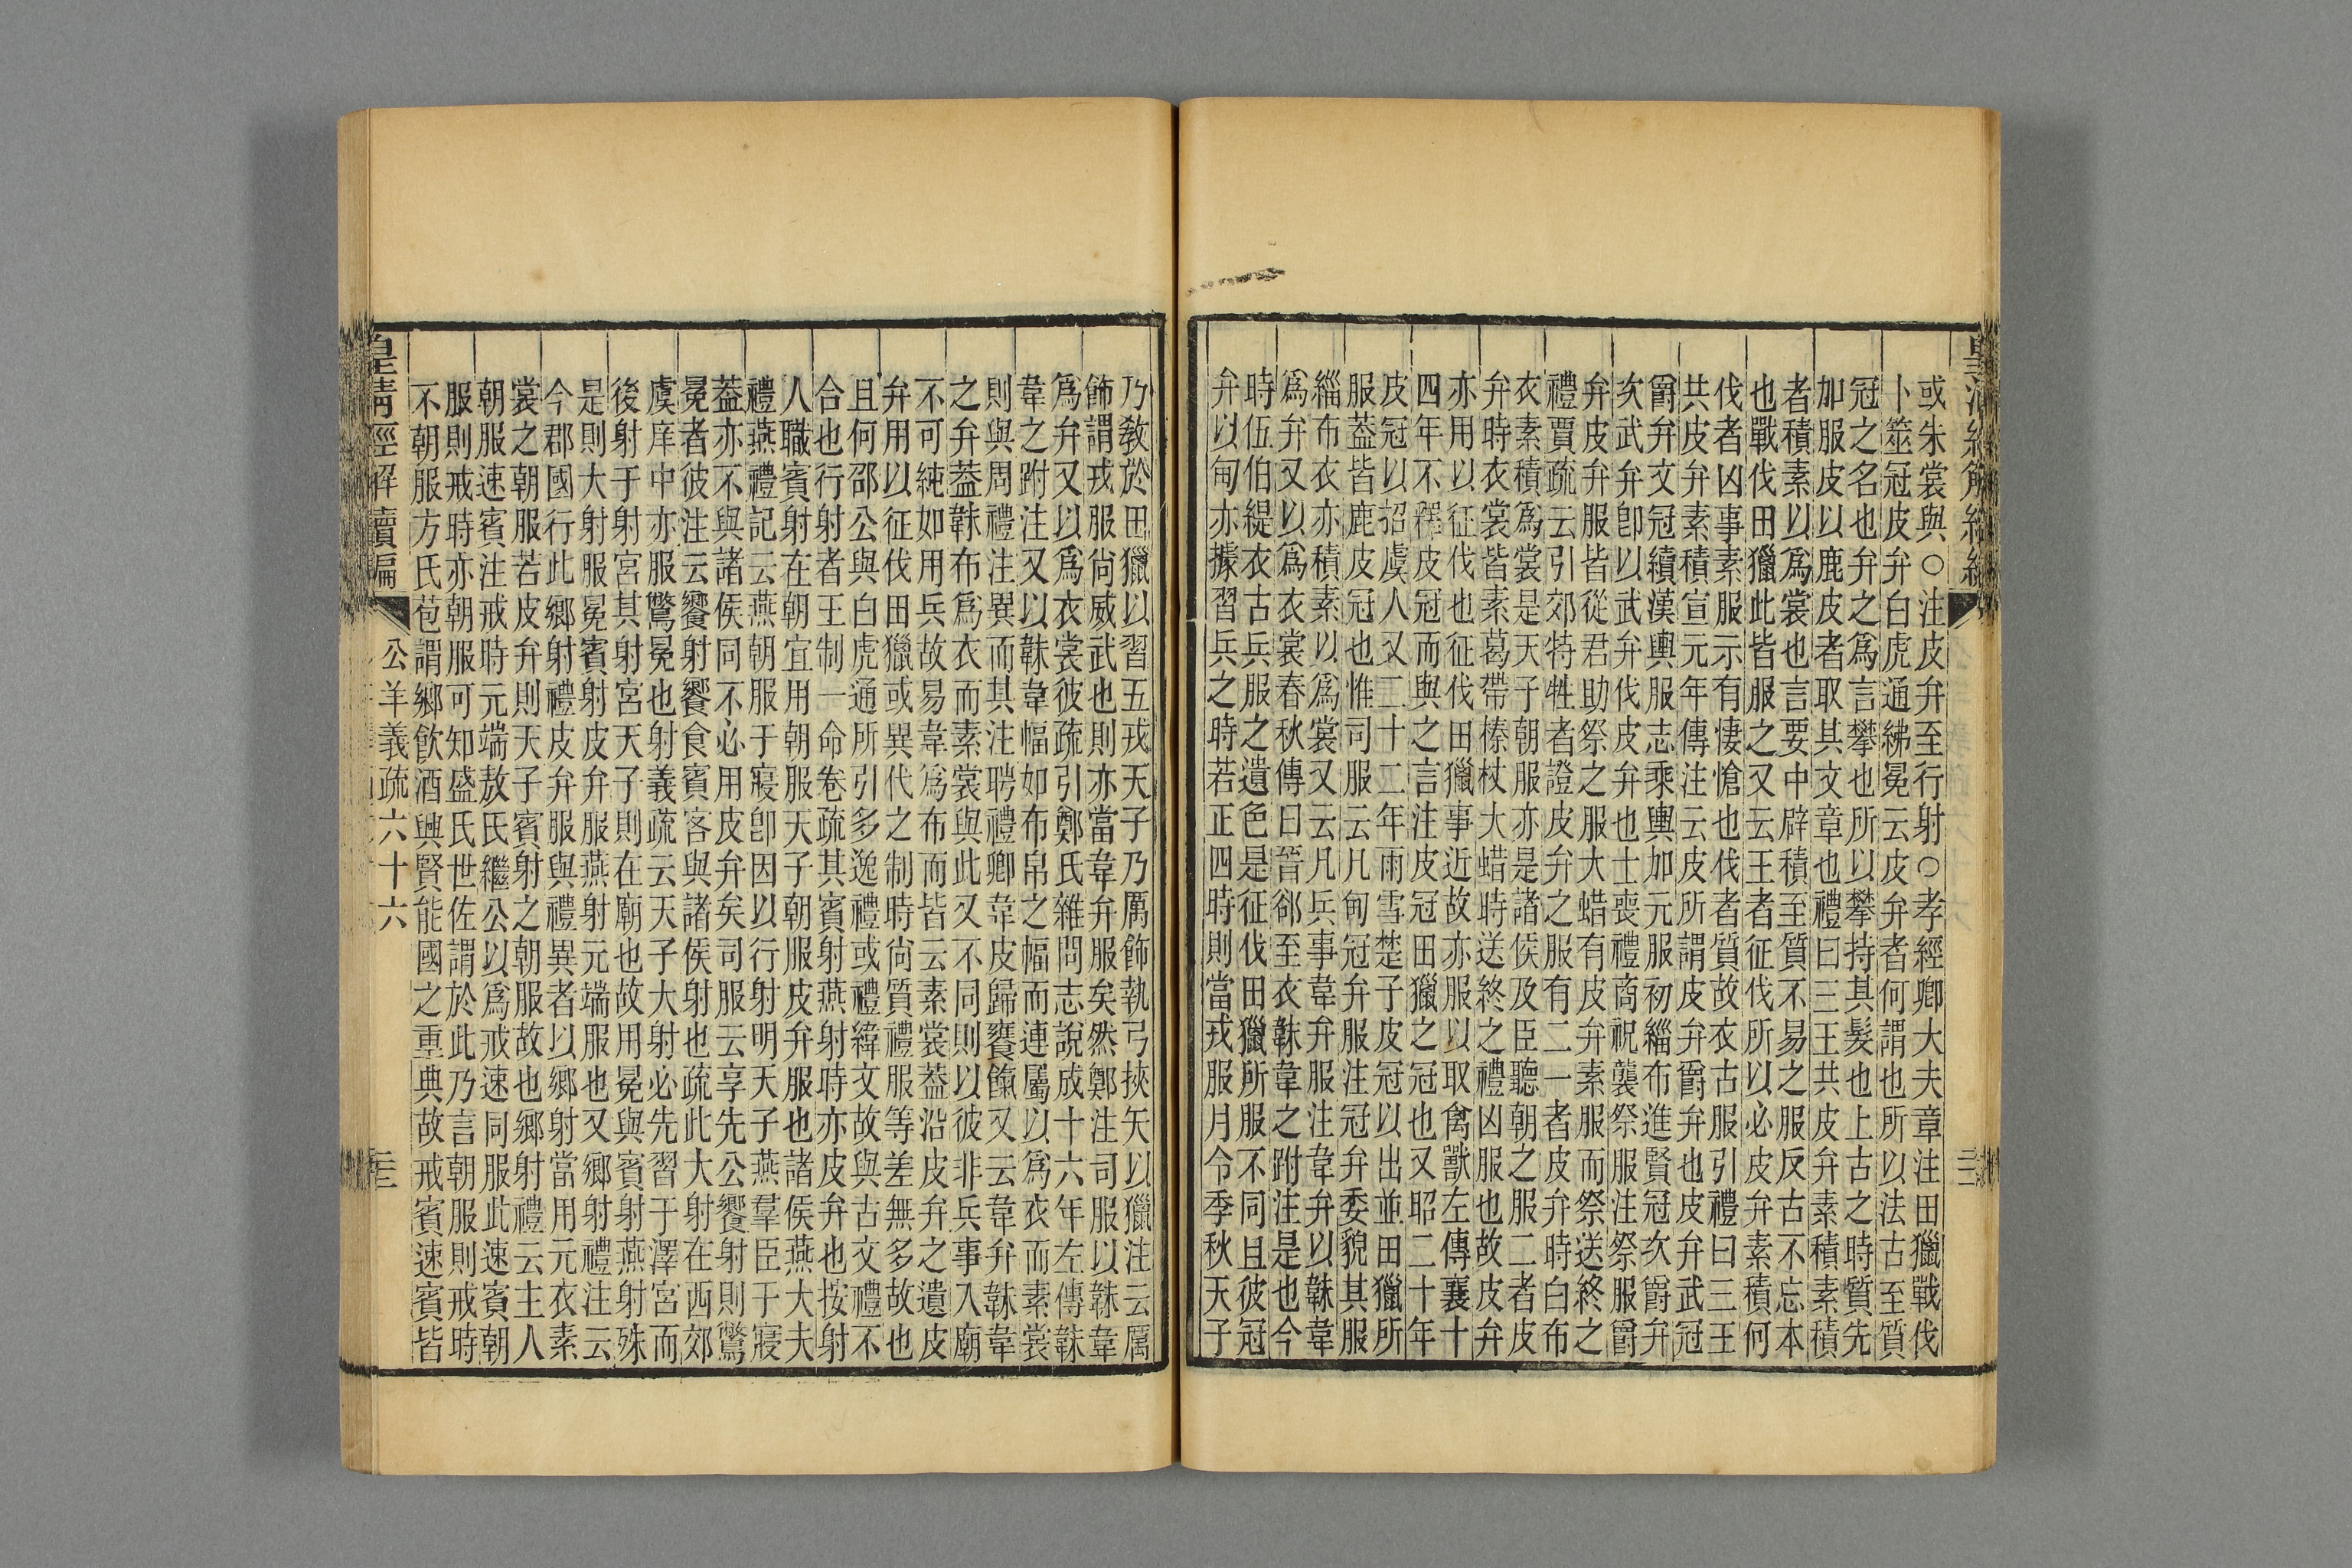 或朱裳與○注皮弁至行射○孝經卿大夫章注田獵戰伐
卜筮冠皮弁白虎通紼冕云皮弁者何謂也所以法古至質
冠之名也弁之爲言攀也所以攀持其髮也上古之時質先
加服皮以鹿皮者取其文章也禮曰三王共皮弁素積素積
者積素以爲裳也言要中辟積至質不易之服反古不忘本
也戰伐田獵此皆服之又云王者征伐所以必皮弁素積何
伐者凶事素服示有悽愴也伐者質故衣古服引禮曰三王
共皮弁素積宣元年傳注云皮所謂皮弁爵弁也皮弁武冠
爵弁文冠續漢輿服志乘輿加元服初緇布進賢冠次爵弁
次武弁卽以武弁伐皮弁也士喪禮商祝襲祭服注祭服爵
弁皮弁服皆從君助祭之服大蜡有皮弁素服而祭送終之
禮賈疏云引郊特牲者證皮弁之服有二一者皮弁時白布
衣素積爲裳是天子朝服亦是諸侯及臣聽朝之服二者皮
弁時衣裳皆素葛帶榛杖大蜡時送終之禮凶服也故皮弁
亦用以征伐也征伐田獵事近故亦服以取禽獸左傳襄十
四年不釋皮冠而與之言注皮冠田獵之冠也又昭二十年
皮冠以招虞人又二十二年雨雪楚子皮冠以出並田獵所
服葢皆鹿皮冠也惟司服云凡甸冠弁服注冠弁委貌其服
緇布衣亦積素以爲裳又云凡兵事韋弁服注韋弁以韎韋
爲弁又以爲衣裳春秋傳曰晉郤至衣韎韋之跗注是也今
時伍伯緹衣古兵服之遺色是征伐田獵所服不同且彼冠
弁以甸亦據習兵之時若正四時則當戎服月令季秋天子
乃敎於田獵以習五戎天子乃厲飾執弓挾矢以獵注云厲
飾謂戎服尙威武也則亦當韋弁服矣然鄭注司服以韎韋
爲弁又以爲衣裳彼疏引鄭氏雜問志說成十六年左傳韎
韋之跗注又以韎韋幅如布帛之幅而連屬以爲衣而素裳
則與周禮注異而其注聘禮卿韋皮歸饔餼又云韋弁韎韋
之弁葢韎布爲衣而素裳與此又不同則以彼非兵事入廟
不可純如用兵故易韋爲布而皆云素裳葢沿皮弁之遺皮
弁用以征伐田獵或異代之制時尙質禮服等差無多故也
且何邵公與白虎通所引多逸禮或禮緯文故與古文禮不
合也行射者王制一命卷疏其賓射燕射時亦皮弁也按射
人職賓射在朝宜用朝服天子朝服皮弁服也諸侯燕大夫
禮燕禮記云燕朝服于寢卽因以行射明天子燕羣臣于寢
葢亦不與諸侯同不必用皮弁矣司服云享先公饗射則鷩
冕者彼注云饗射饗食賓客與諸侯射也疏此大射在西郊
虞庠中亦服鷩冕也射義疏云天子大射必先習于澤宮而
後射于射宮其射宮天子則在廟也故用冕與賓射燕射殊
是則大射服冕賓射皮弁服燕射元端服也又鄉射禮注云
今郡國行此鄉射禮皮弁服與禮異者以鄉射當用元衣素
裳之朝服若皮弁則天子賓射之朝服故也鄉射禮云主人
朝服速賓注戒時元端敖氏繼公以爲戒速同服此速賓朝
服則戒時亦朝服可知盛氏世佐謂於此乃言朝服則戒時
不朝服方氏苞謂鄉飮酒興賢能國之重典故戒賓速賓皆
皇淸經解續編
公羊義疏六十六